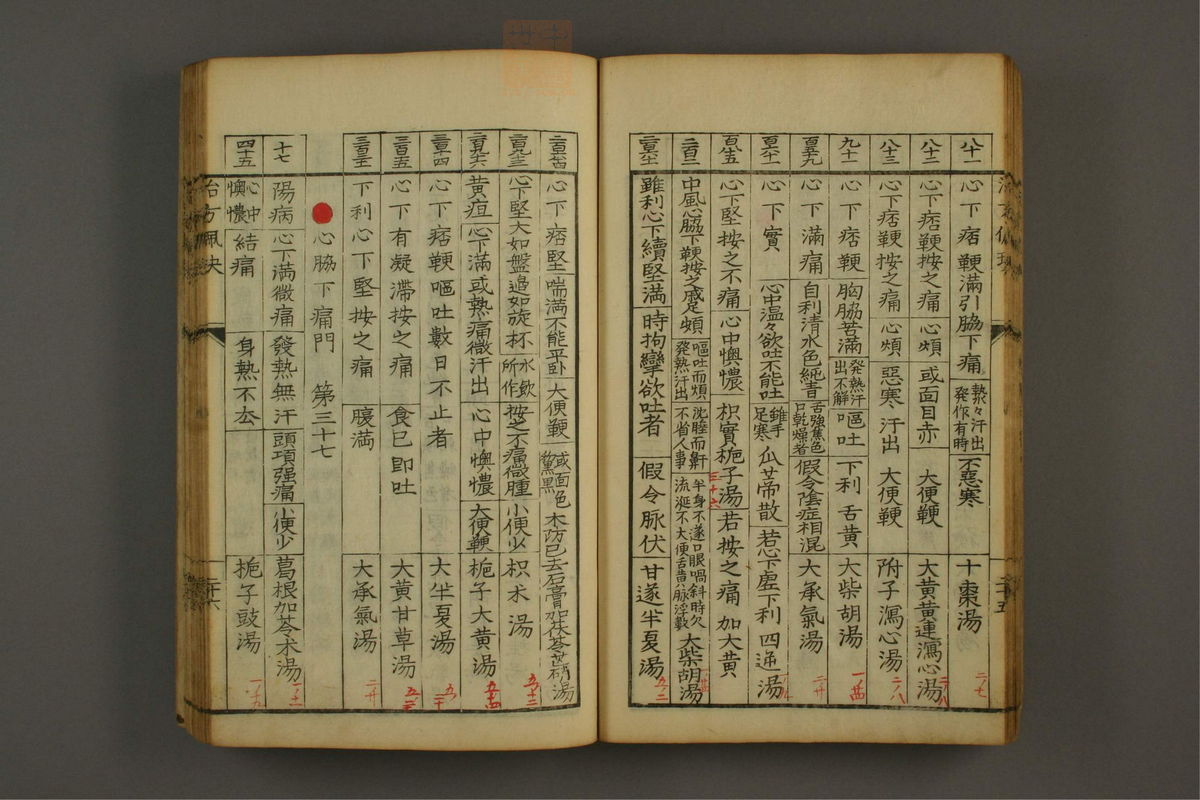 八十一 心下痞鞕滿引脇下痛 漐々汗出發作有時 不惡寒 十棗湯 二ノ七
八十二 心下痞鞕按之痛 心煩 或面目赤 大便鞕 大黃黃連瀉心湯 二ノ八
八十三 心下痞鞕按之痛 心煩 惡寒 汗出 大便鞕 附子瀉心湯 二ノ八
九十一 心下痞鞕 胸脇苦滿 發熱汗出不解 嘔吐 下利 舌黃 大柴胡湯
百五十九 心下滿痛 自利清水色純青 舌強焦色口乾燥者 假令陰症相混 大承氣湯 二ノ廿
心下實 心中温々欲吐不能吐 雖手足寒 瓜苐散 若心下虛下利 四逆湯
心下堅 按之不痛 心中懊憹 枳實梔子湯 若按之痛 加大黃
二百二 中風心脇下鞕按之戚足煩 嘔吐而煩發熱汗出 沈睡而鼾不省人事 半身不遂口眼喎斜時欠流涎不大便舌黄脉淫數 大柴胡湯
雖利心下續堅滿 時拘攣欲吐者 假令脉伏 甘遂半夏湯
心下痞堅 喘滿不能平卧 大便鞕 或面色黧黑 木防已去石膏加茯苓芒硝湯
心下堅大如盤邉如旋杯 水飲所作 按之不痛微腫 小便少 枳朮湯
黄疸 心下滿或熱痛微汗出 心中懊憹 大便鞕 梔子大黄湯
心下痞鞕嘔吐數日不止者 大半夏湯
三百五 心下有凝滯按之痛 食已即吐 大黃甘草湯
下利心下堅按之痛 腹満 大承氣湯 二ノ廿
心脇下痛門 第三十七
十七 陽病 心下満微痛 發熱無汗 頭項强痛 小便少 葛根加苓朮湯
四十五 心中懊憹 結痛 身熱不去 梔子豉湯
治方佩決
二十六
二十五